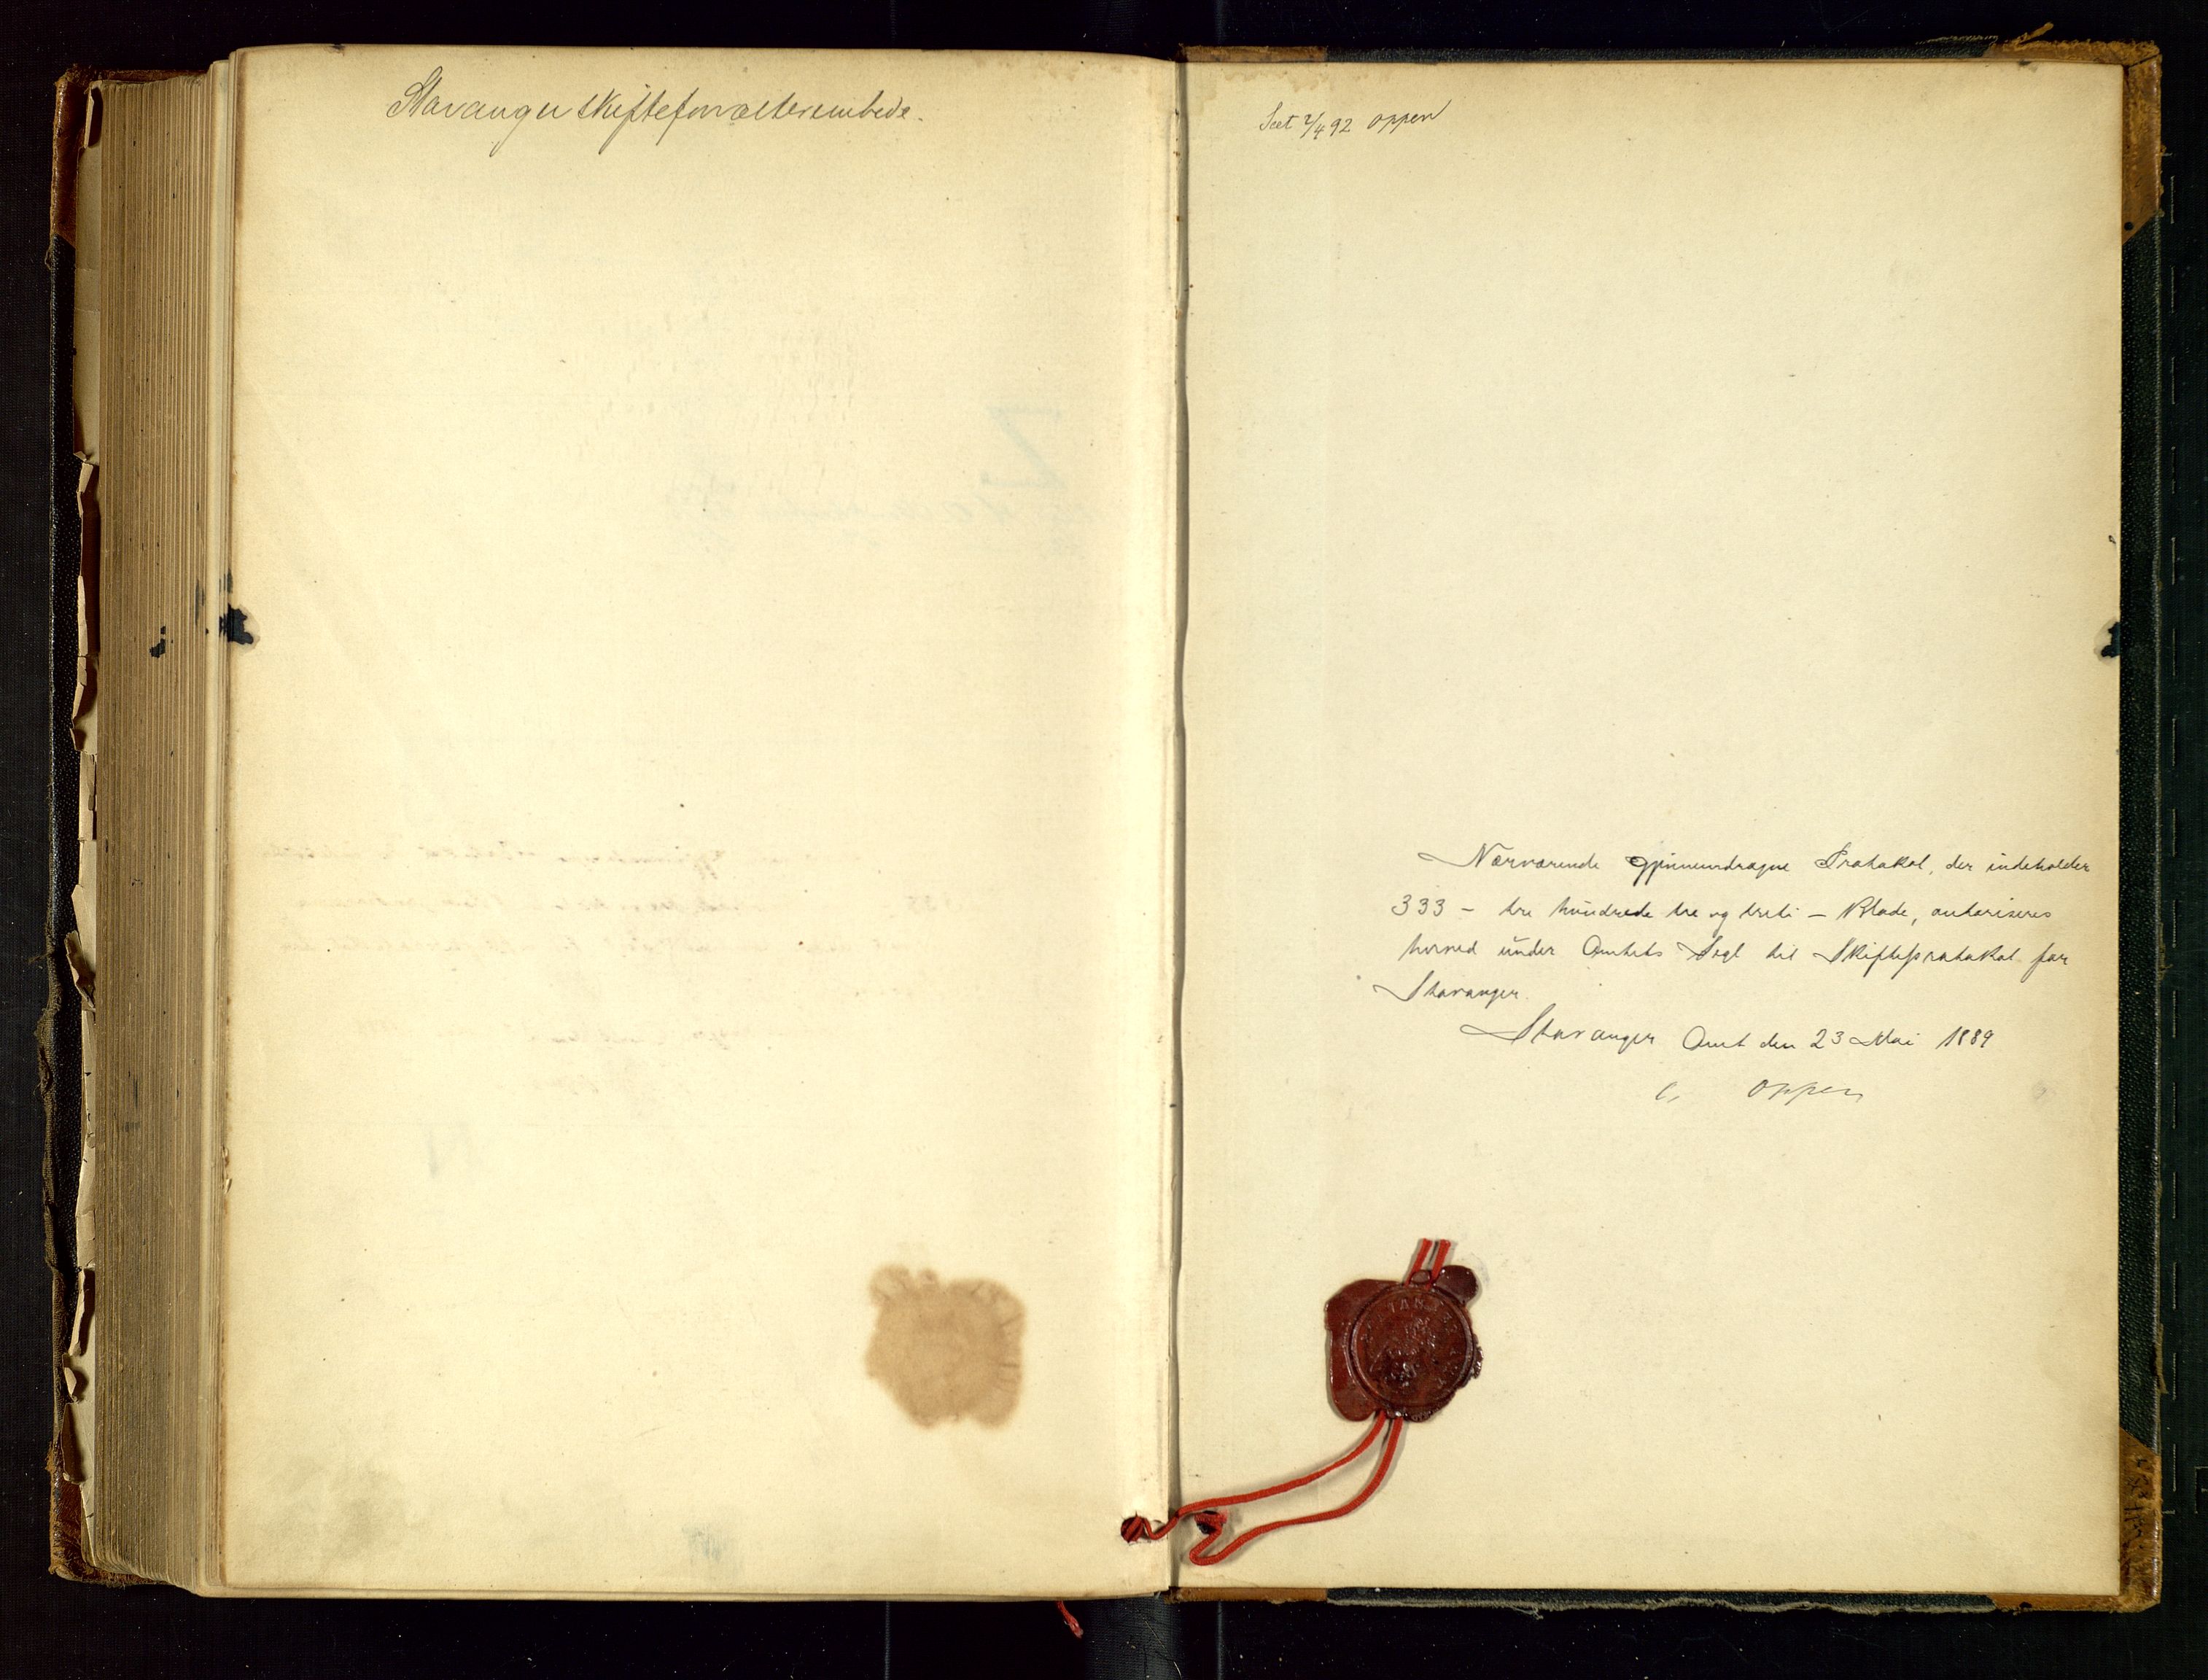 Stavanger skifteforvalterembede.
Seet 2/4 92 Oppen
Nærværende gjennemdragne Protokol, der indeholder
333 - tre hundrede tre og treti - Blade, autoriseres
herved under Amtets Segl til Skifteprotokol for
Stavanger.
Stavanger Amt den 23 Mai 1889
C. Oppen